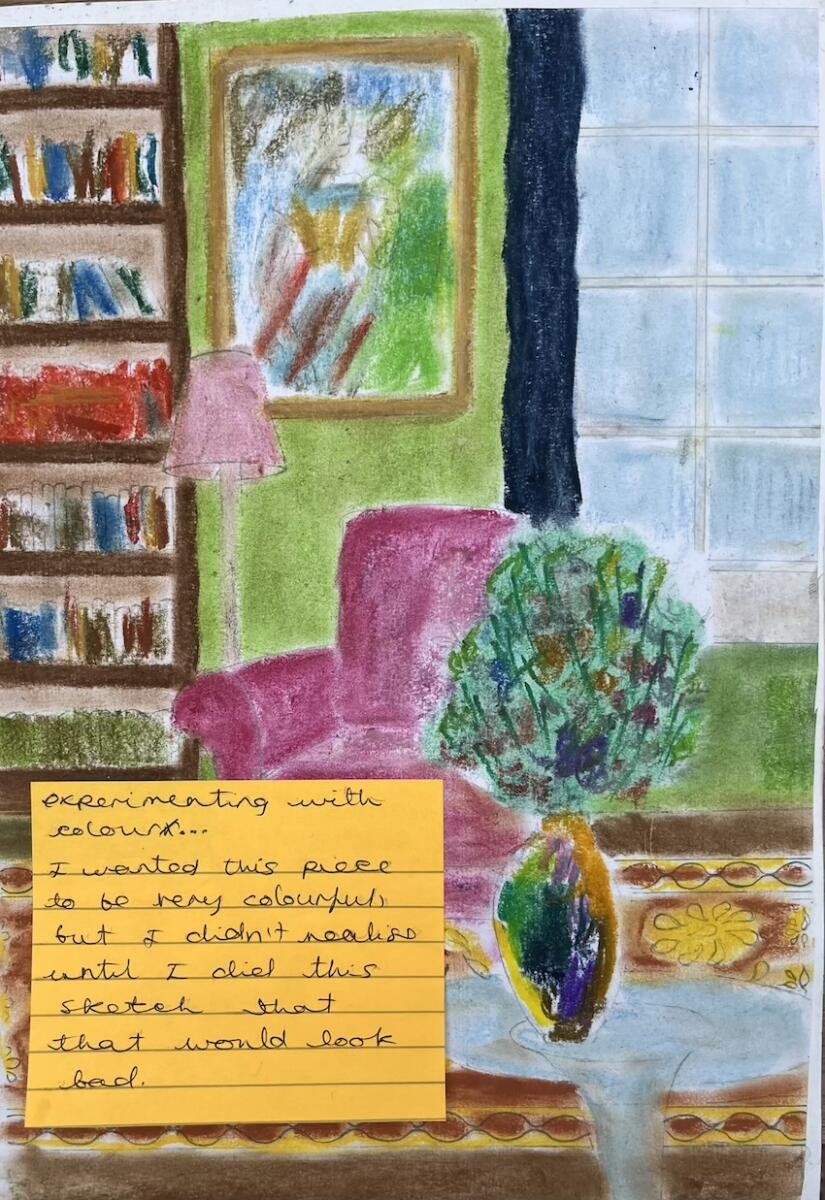 experimenting with
colour...
I wanted this piece
to be very colourful,
but I didn't realise
until I did this
sketch that
that would look
bad.